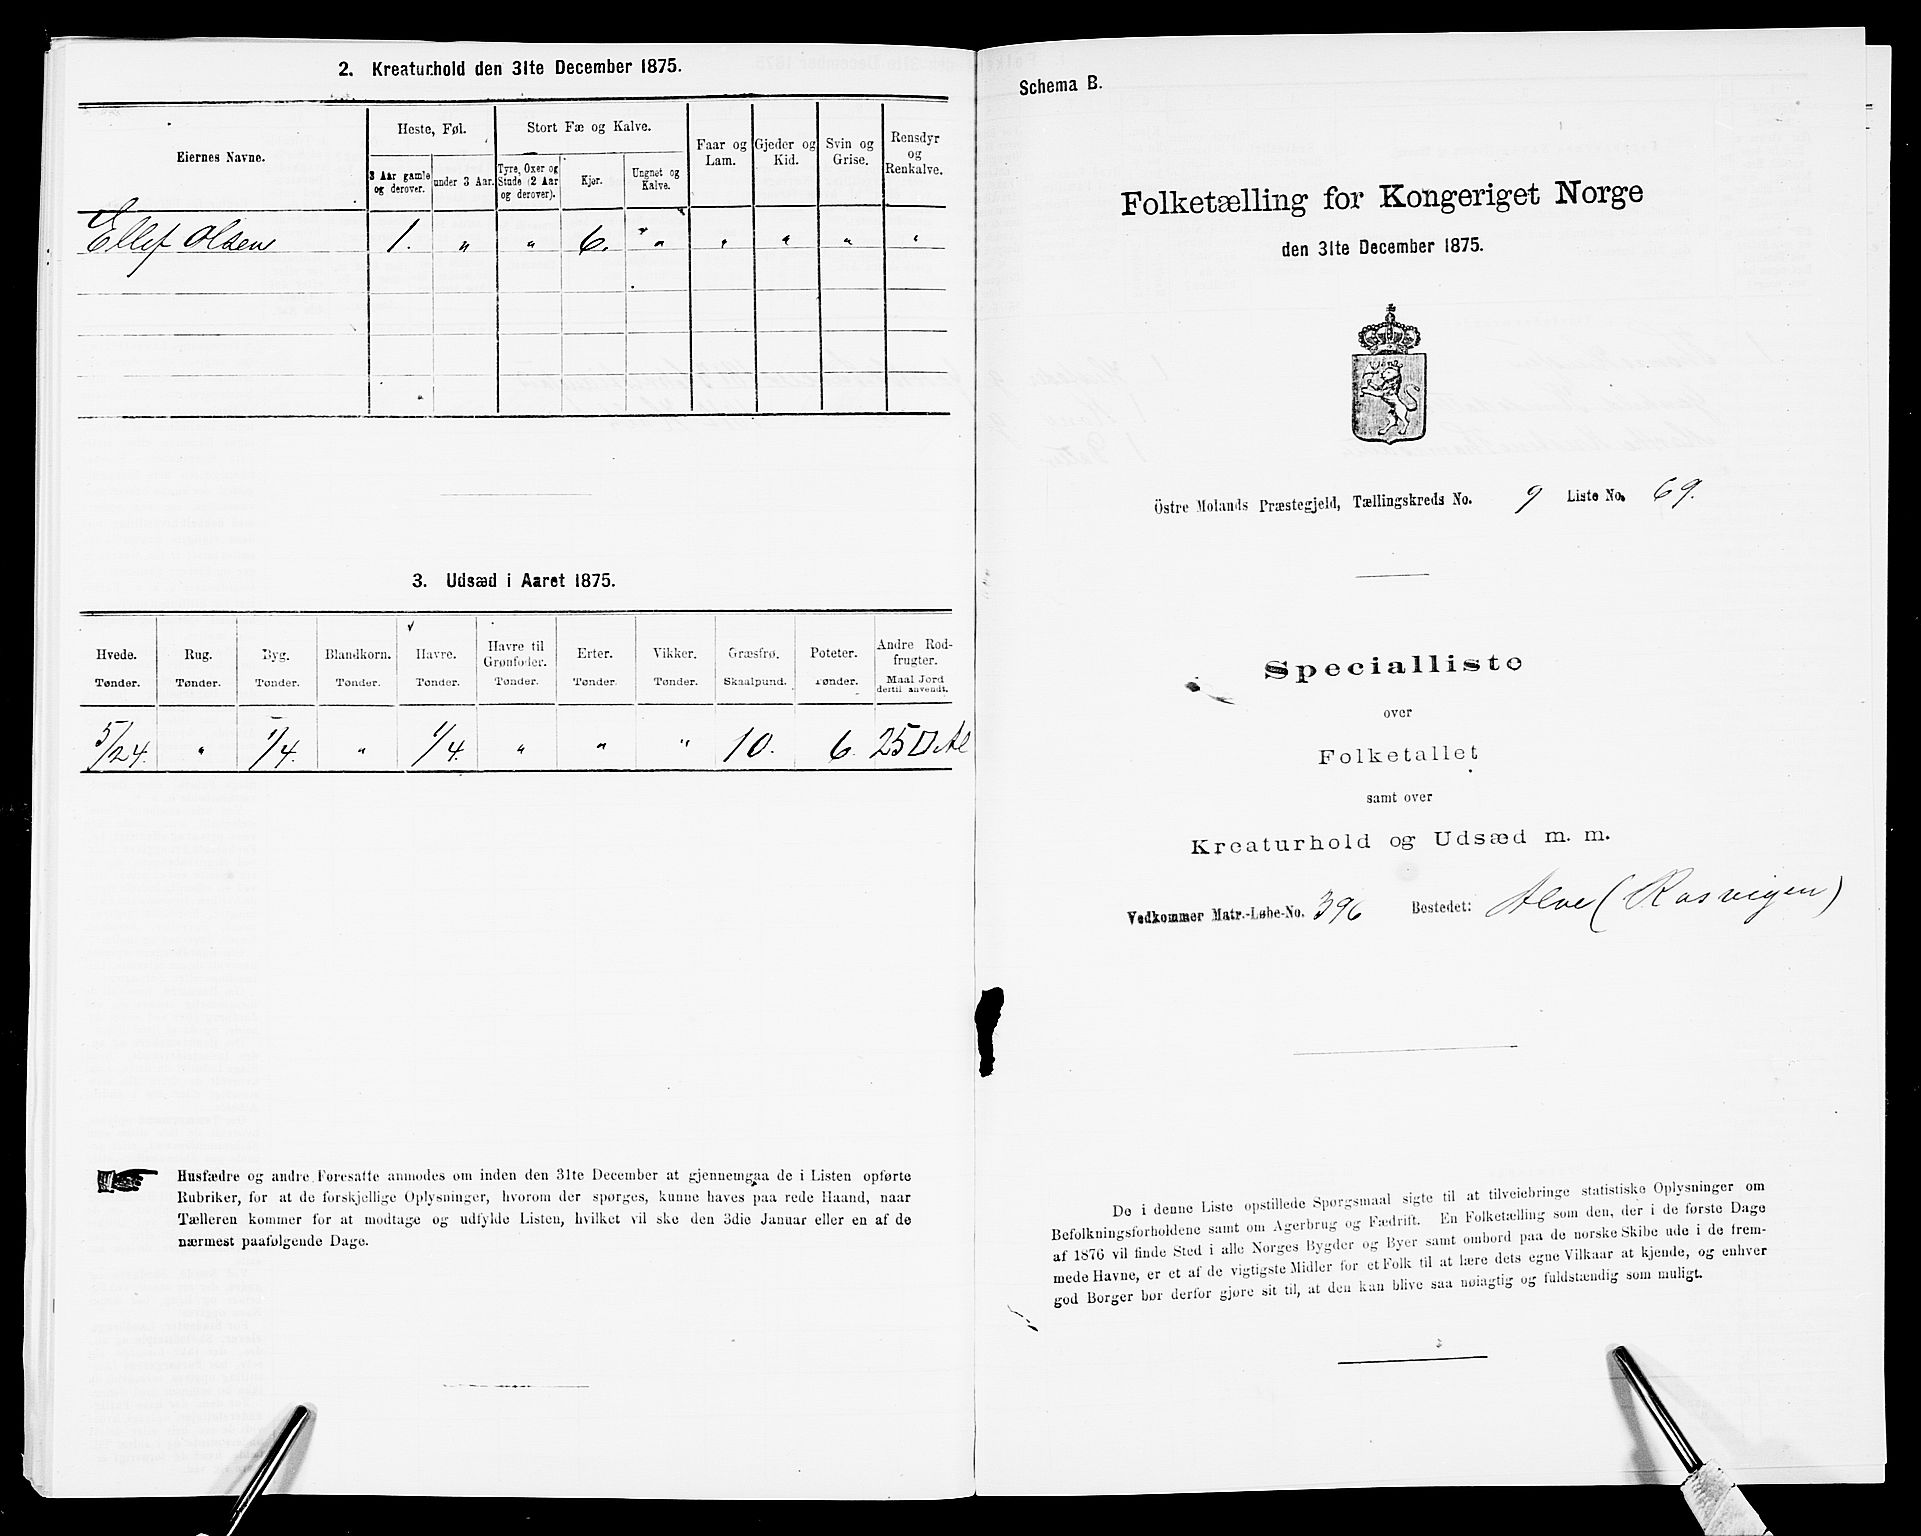 2. Kreaturhold den 31te December 1875.
Eiernes Navne.
Heste, Føl.
Stort Fæ og Kalve.
Faar og Lam.
Gjeder og Kid.
Svin og Grise.
Rensdyr og Renkalve.
3 Aar gamle og derover.
under 3 Aar.
Tyre, Oxer og Stude (2 Aar og derover).
Kjør.
Ungnet og Kalve.
Ellef Olsen 1. " " 6. " " " " "
3. Udsæd i Aaret 1875.
Hvede. Tønder.
Rug. Tønder.
Byg. Tønder.
Blandkorn. Tønder.
Havre. Tønder.
Havre til Grønfoder. Tønder.
Erter. Tønder.
Vikker. Tønder.
Græsfrø. Skaalpund.
Poteter. Tønder.
Andre Rodfrugter. Maal Jord dertil anvendt.
5/24. " 1/4. " 1/4. " " " 10. 6. 25 □ Al
Husfædre og andre Foresatte anmodes om inden den 31te December at gjennemgaa de i Listen opførte
Rubriker, for at de forskjellige Oplysninger, hvorom der spørges, kunne haves paa rede Haand, naar
Tælleren kommer for at modtage og udfylde Listen, hvilket vil ske den 3die Januar eller en af de
nærmest paafølgende Dage.
Schema B.
Folketælling for Kongeriget Norge
den 31te December 1875.
Östre Molands Præstegjeld, Tællingskreds No. 9 Liste No. 69.
Specialliste
over
Folketallet
samt over
Kreaturhold og Udsæd m. m.
Vedkommer Matr.-Løbe-No. 396 Bostedet: Alve (Rasvigen)
De i denne Liste opstillede Spørgsmaal sigte til at tilveiebringe statistiske Oplysninger om
Befolkningsforholdene samt om Agerbrug og Fædrift. En Folketælling som den, der i de første Dage
af 1876 vil finde Sted i alle Norges Bygder og Byer samt ombord paa de norske Skibe ude i de frem-
mede Havne, er et af de vigtigste Midler for et Folk til at lære dets egne Vilkaar at kjende, og enhver
god Borger bør derfor gjøre sit til, at den kan blive saa nøiagtig og fuldstændig som muligt.